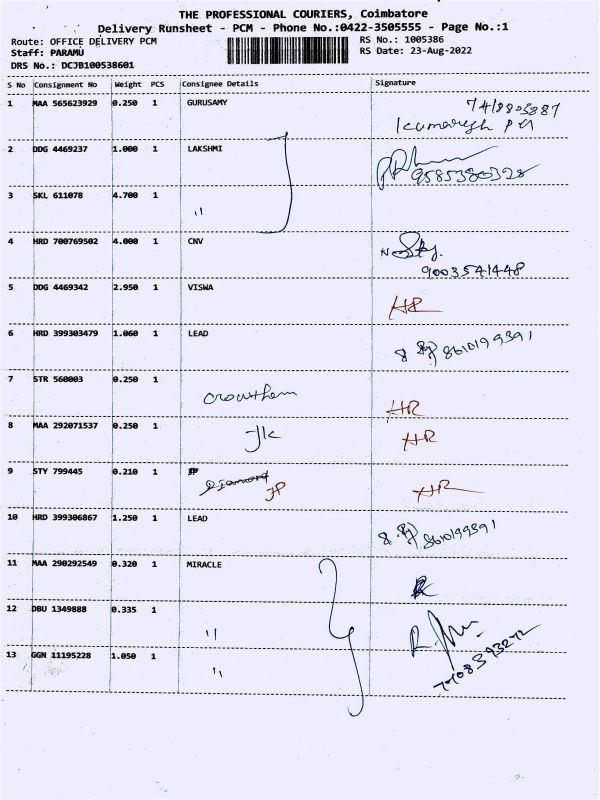 THE PROFESSIONAL COURIERS, Coimbatore
Delivery Runsheet - PCM - Phone No.:0422-3505555 - Page No.:1
Route: OFFICE DELIVERY PCM
RS No.: 1005386
Staff: PARAMU
RS Date: 23-Aug-2022
DRS No.: DCJB100538601
S No Consignment No Weight PCS Consignee Details Signature
1 MAA 565623929 0.250 1 GURUSAMY
2 DDG 4469237 1.000 1 LAKSHMI
9585380328
3 SKL 611078 4.700 1 "
4 HRD 700769502 4.000 1 CNV
9003541448
5 DDG 4469342 2.950 1 VISWA HR
6 HRD 399303479 1.060 1 LEAD 8610199391
7 STR 560003 0.250 1 HR
8 MAA 292071537 0.250 1 JK HR
9 STY 799445 0.210 1 JP HR
10 HRD 399306867 1.250 1 LEAD 8610199391
11 MAA 290292549 0.320 1 MIRACLE
12 DBU 1349888 0.335 1 "
13 GGN 11195228 1.050 1 "